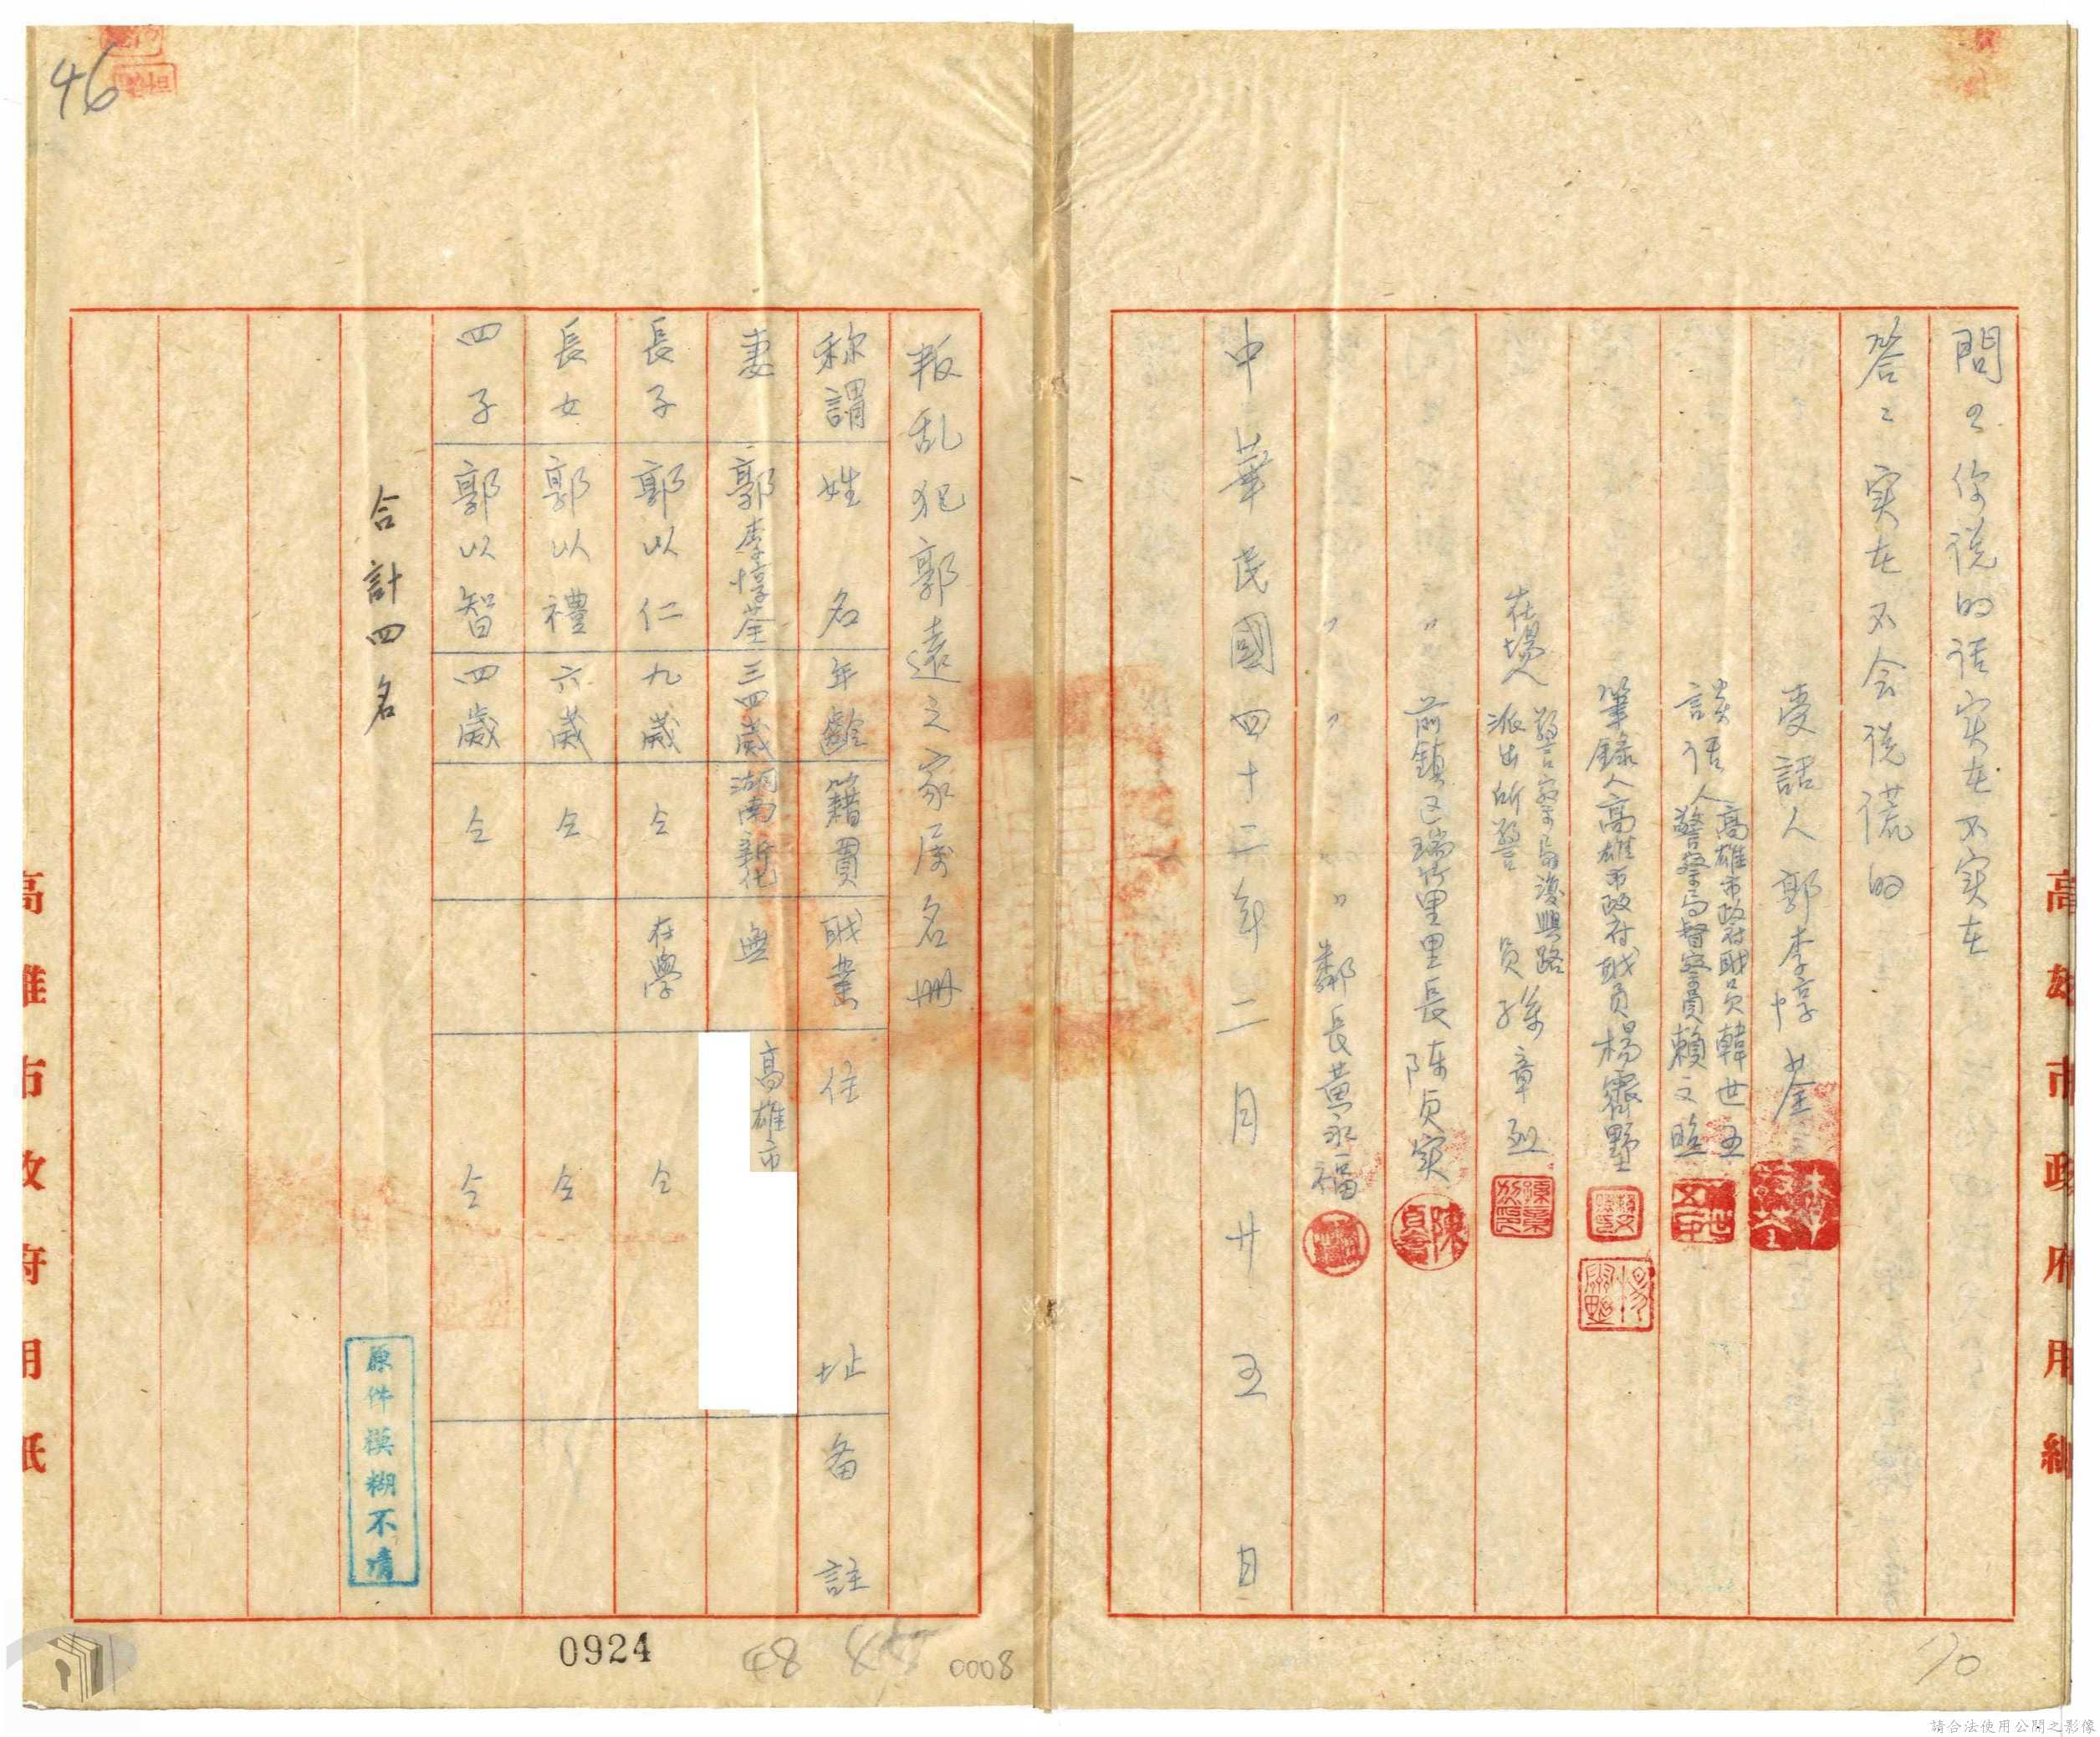 問：你说的话实在不实在
答：実在不会说謊的
受話人郭李惇荃
談话人高雄市政府职员韓世五
警察局督察員賴文熙
筆錄人高雄市政府职员楊霽野
在場人警察局復興路
派出所警員孫章烈
〃前鎮区瑞竹里里長陳貞実
〃〃〃鄰長黃永福
中華民國四十二年二月廿五日
高雄市政府用紙
叛乱犯郭遠之家属名册
称謂 姓名 年齡 籍貫 职業 住址 备註
妻 郭李惇荃 三四歲 湖南新化 無 高雄市
長子 郭以仁 九歲 仝 在學 仝
長女 郭以禮 六歲 仝 仝
四子 郭以智 四歲 仝 仝
合計四名
原件模糊不清
高雄市政府用紙
46
0924
48
0008
70
請合法使用公開之影像